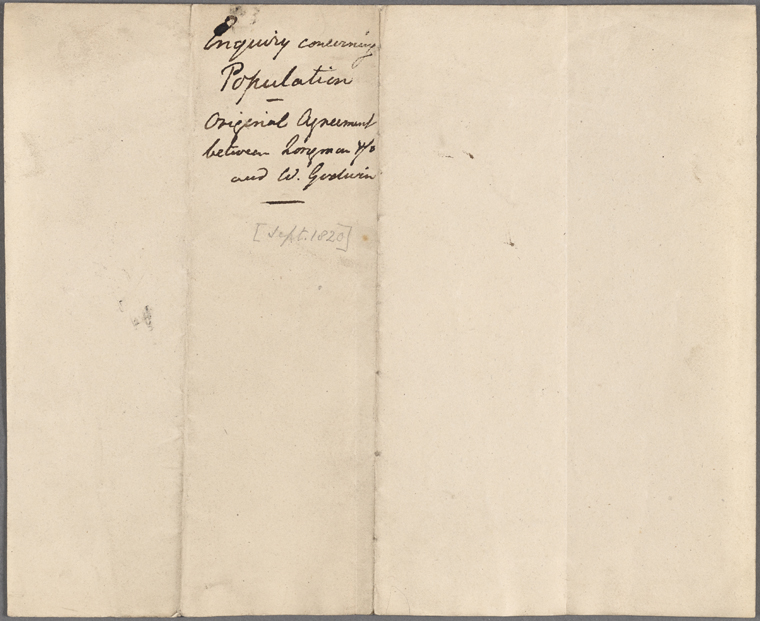 Enquiry concerning
Population
Original Agreement
between Longman &
and W. Godwin
[Sept. 1820]